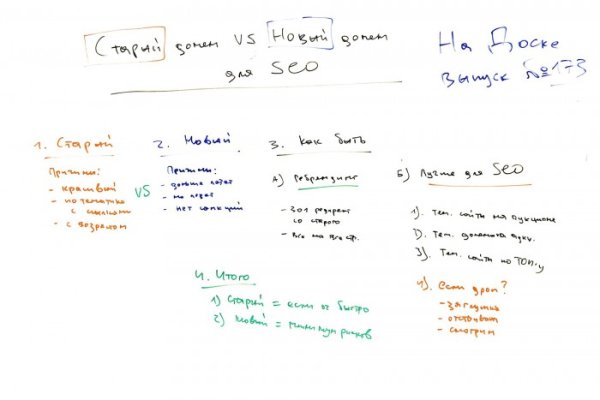 Старый домен VS Новый домен
для SEO
На Доске
выпуск №173
1. Старый
Причины:
- красивый
- по тематике
с ссылками
- с возрастом
VS
2. Новый
Причины:
- дольше
- нет санкций
3. Как быть
А) Ребрендинг
- 301 редирект
со старого
- Все на все стр.
Б) Лучше для SEO
1). Тем. сайты на аукционе
2). Тем. домена аукц.
3). Тем. сайты по ТОП-у
4) если дроп?
- заглушка
- отстоялся
- смотрим
4. Итого
1) Старый = если ок быстро
2) Новый = минимум рисков